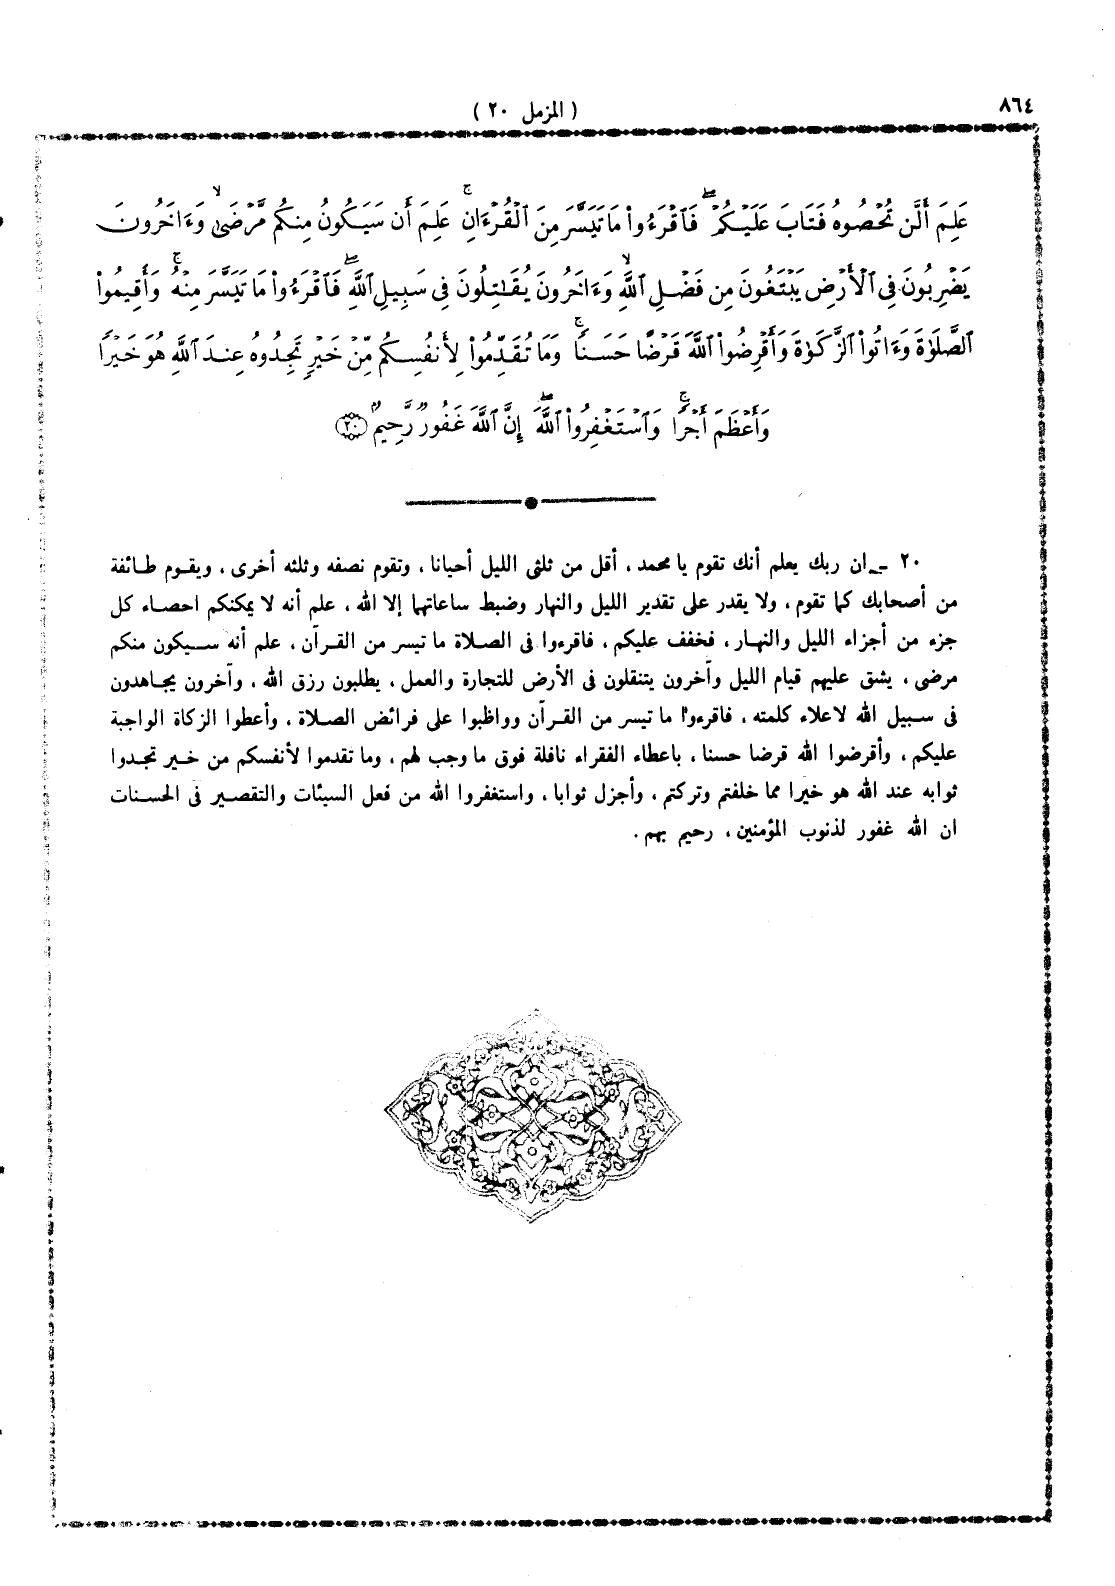 ٨٦٤
( المزمل ٢٠ )
عَلِمَ أَلَّن تُحْصُوهُ فَتَابَ عَلَيْكُمْ ۖ فَٱقْرَءُوا۟ مَا تَيَسَّرَ مِنَ ٱلْقُرْءَانِ ۚ عَلِمَ أَن سَيَكُونُ مِنكُم مَّرْضَىٰ ۙ وَءَاخَرُونَ
يَضْرِبُونَ فِى ٱلْأَرْضِ يَبْتَغُونَ مِن فَضْلِ ٱللَّهِ ۙ وَءَاخَرُونَ يُقَـٰتِلُونَ فِى سَبِيلِ ٱللَّهِ ۖ فَٱقْرَءُوا۟ مَا تَيَسَّرَ مِنْهُ ۚ وَأَقِيمُوا۟
ٱلصَّلَوٰةَ وَءَاتُوا۟ ٱلزَّكَوٰةَ وَأَقْرِضُوا۟ ٱللَّهَ قَرْضًا حَسَنًا ۚ وَمَا تُقَدِّمُوا۟ لِأَنفُسِكُم مِّنْ خَيْرٍ تَجِدُوهُ عِندَ ٱللَّهِ هُوَ خَيْرًا
وَأَعْظَمَ أَجْرًا ۚ وَٱسْتَغْفِرُوا۟ ٱللَّهَ ۖ إِنَّ ٱللَّهَ غَفُورٌ رَّحِيمٌ ٢٠
٢٠ ـ ان ربك يعلم أنك تقوم يا محمد ، أقل من ثلثى الليل أحيانا ، وتقوم نصفه وثلثه أخرى ، ويقوم طائفة
من أصحابك كما تقوم ، ولا يقدر على تقدير الليل والنهار وضبط ساعاتهما إلا الله ، علم أنه لا يمكنكم احصاء كل
جزء من أجزاء الليل والنهار ، فخفف عليكم ، فاقرءوا فى الصلاة ما تيسر من القرآن ، علم أنه سيكون منكم
مرضى ، يشق عليهم قيام الليل وآخرون يتنقلون فى الأرض للتجارة والعمل ، يطلبون رزق الله ، وآخرون يجاهدون
فى سبيل الله لاعلاء كلمته ، فاقرءوا ما تيسر من القرآن وواظبوا على فرائض الصلاة ، وأعطوا الزكاة الواجبة
عليكم ، وأقرضوا الله قرضا حسنا ، باعطاء الفقراء نافلة فوق ما وجب لهم ، وما تقدموا لأنفسكم من خير تجدوا
ثوابه عند الله هو خيرا مما خلفتم وتركتم ، وأجزل ثوابا ، واستغفروا الله من فعل السيئات والتقصير فى الحسنات
ان الله غفور لذنوب المؤمنين ، رحيم بهم .